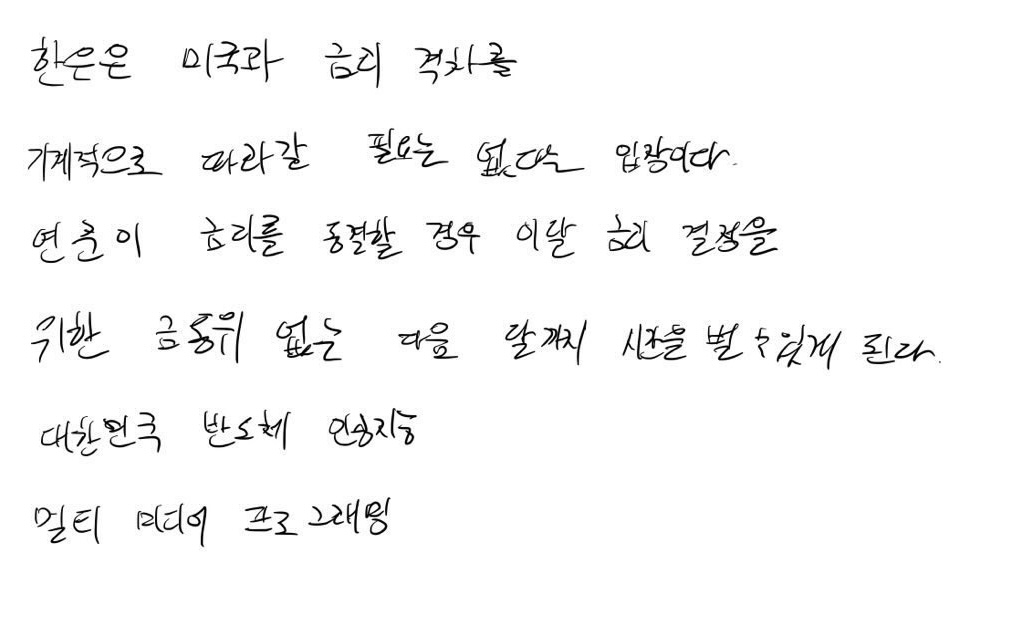 한은은 미국과 금리 격차를
기계적으로 따라갈 필요는 없다는 입장이다.
연준이 금리를 동결할 경우 이달 금리 결정을
위한 금통위 없는 다음 달까지 시간을 벌 수 있게 된다.
대한민국 반도체 인공지능
멀티 미디어 프로그래밍